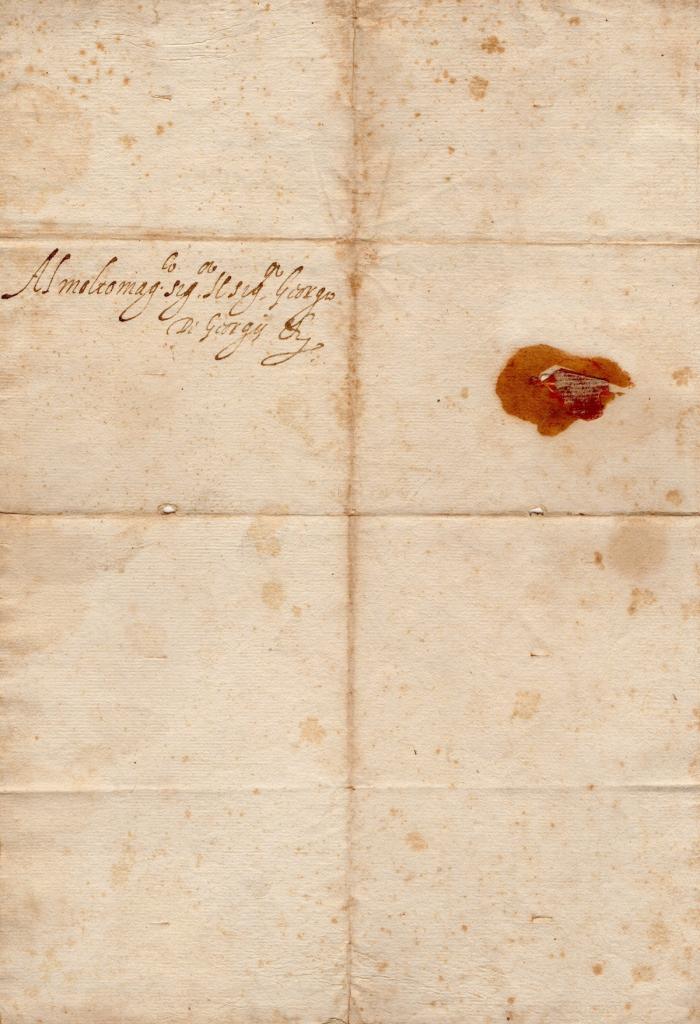 Al molto mag.co sig.re Il sig.re Georgio
Di Georgij &c